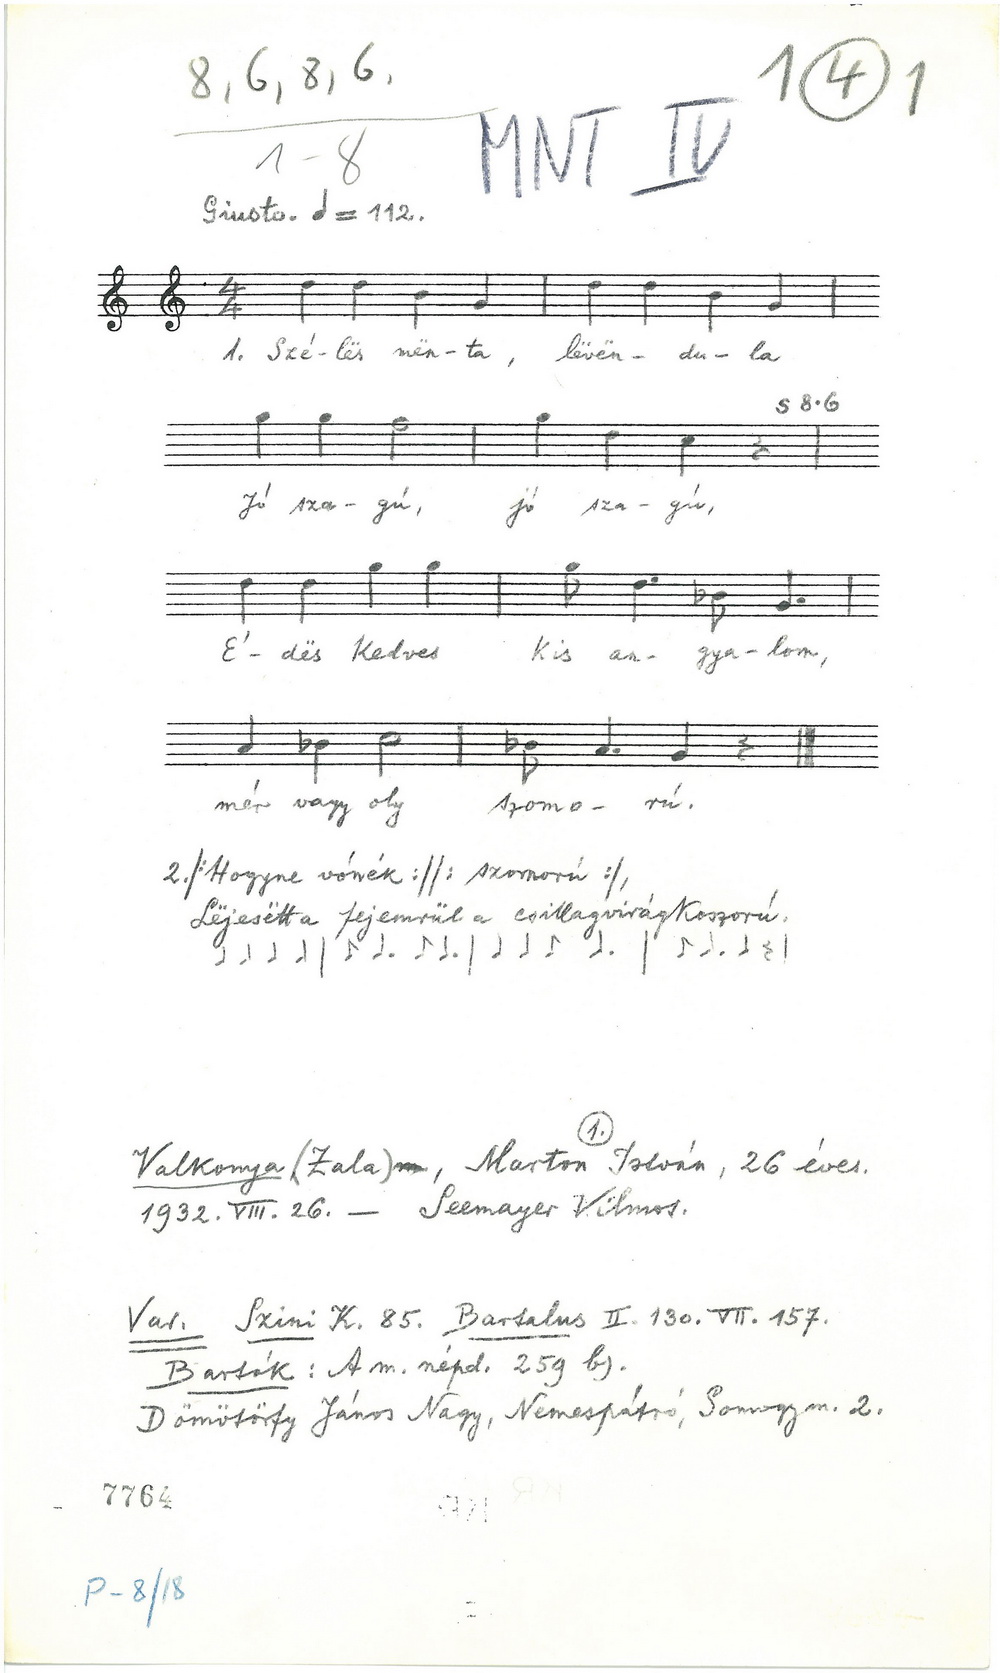 8, 6, 8, 6.
1 ④ 1
1-8
MNT IV
Giusto. ♩ = 112.
4/4
1. Szé-lës mën-ta, lëvën-du-la
s 8.6
Jó sza-gú, jó sza-gú,
É-dës Kedves Kis an-gya-lom,
mér vagy oly szomo-rú.
2./:Hogyne vónék ://: szomorú :/,
Lëjesëtt a fejemrül a csillagvirágkoszorú.
1.
Valkonya (Zala), Marton István, 26 éves.
1932. VIII. 26. — Seemayer Vilmos.
Var. Szini K. 85. Bartalus II. 130. VII. 157.
Bartók: A m. népd. 259 b).
Dömötörfy János Nagy, Nemespátró, Somogy m. 2.
7764
P-8/18